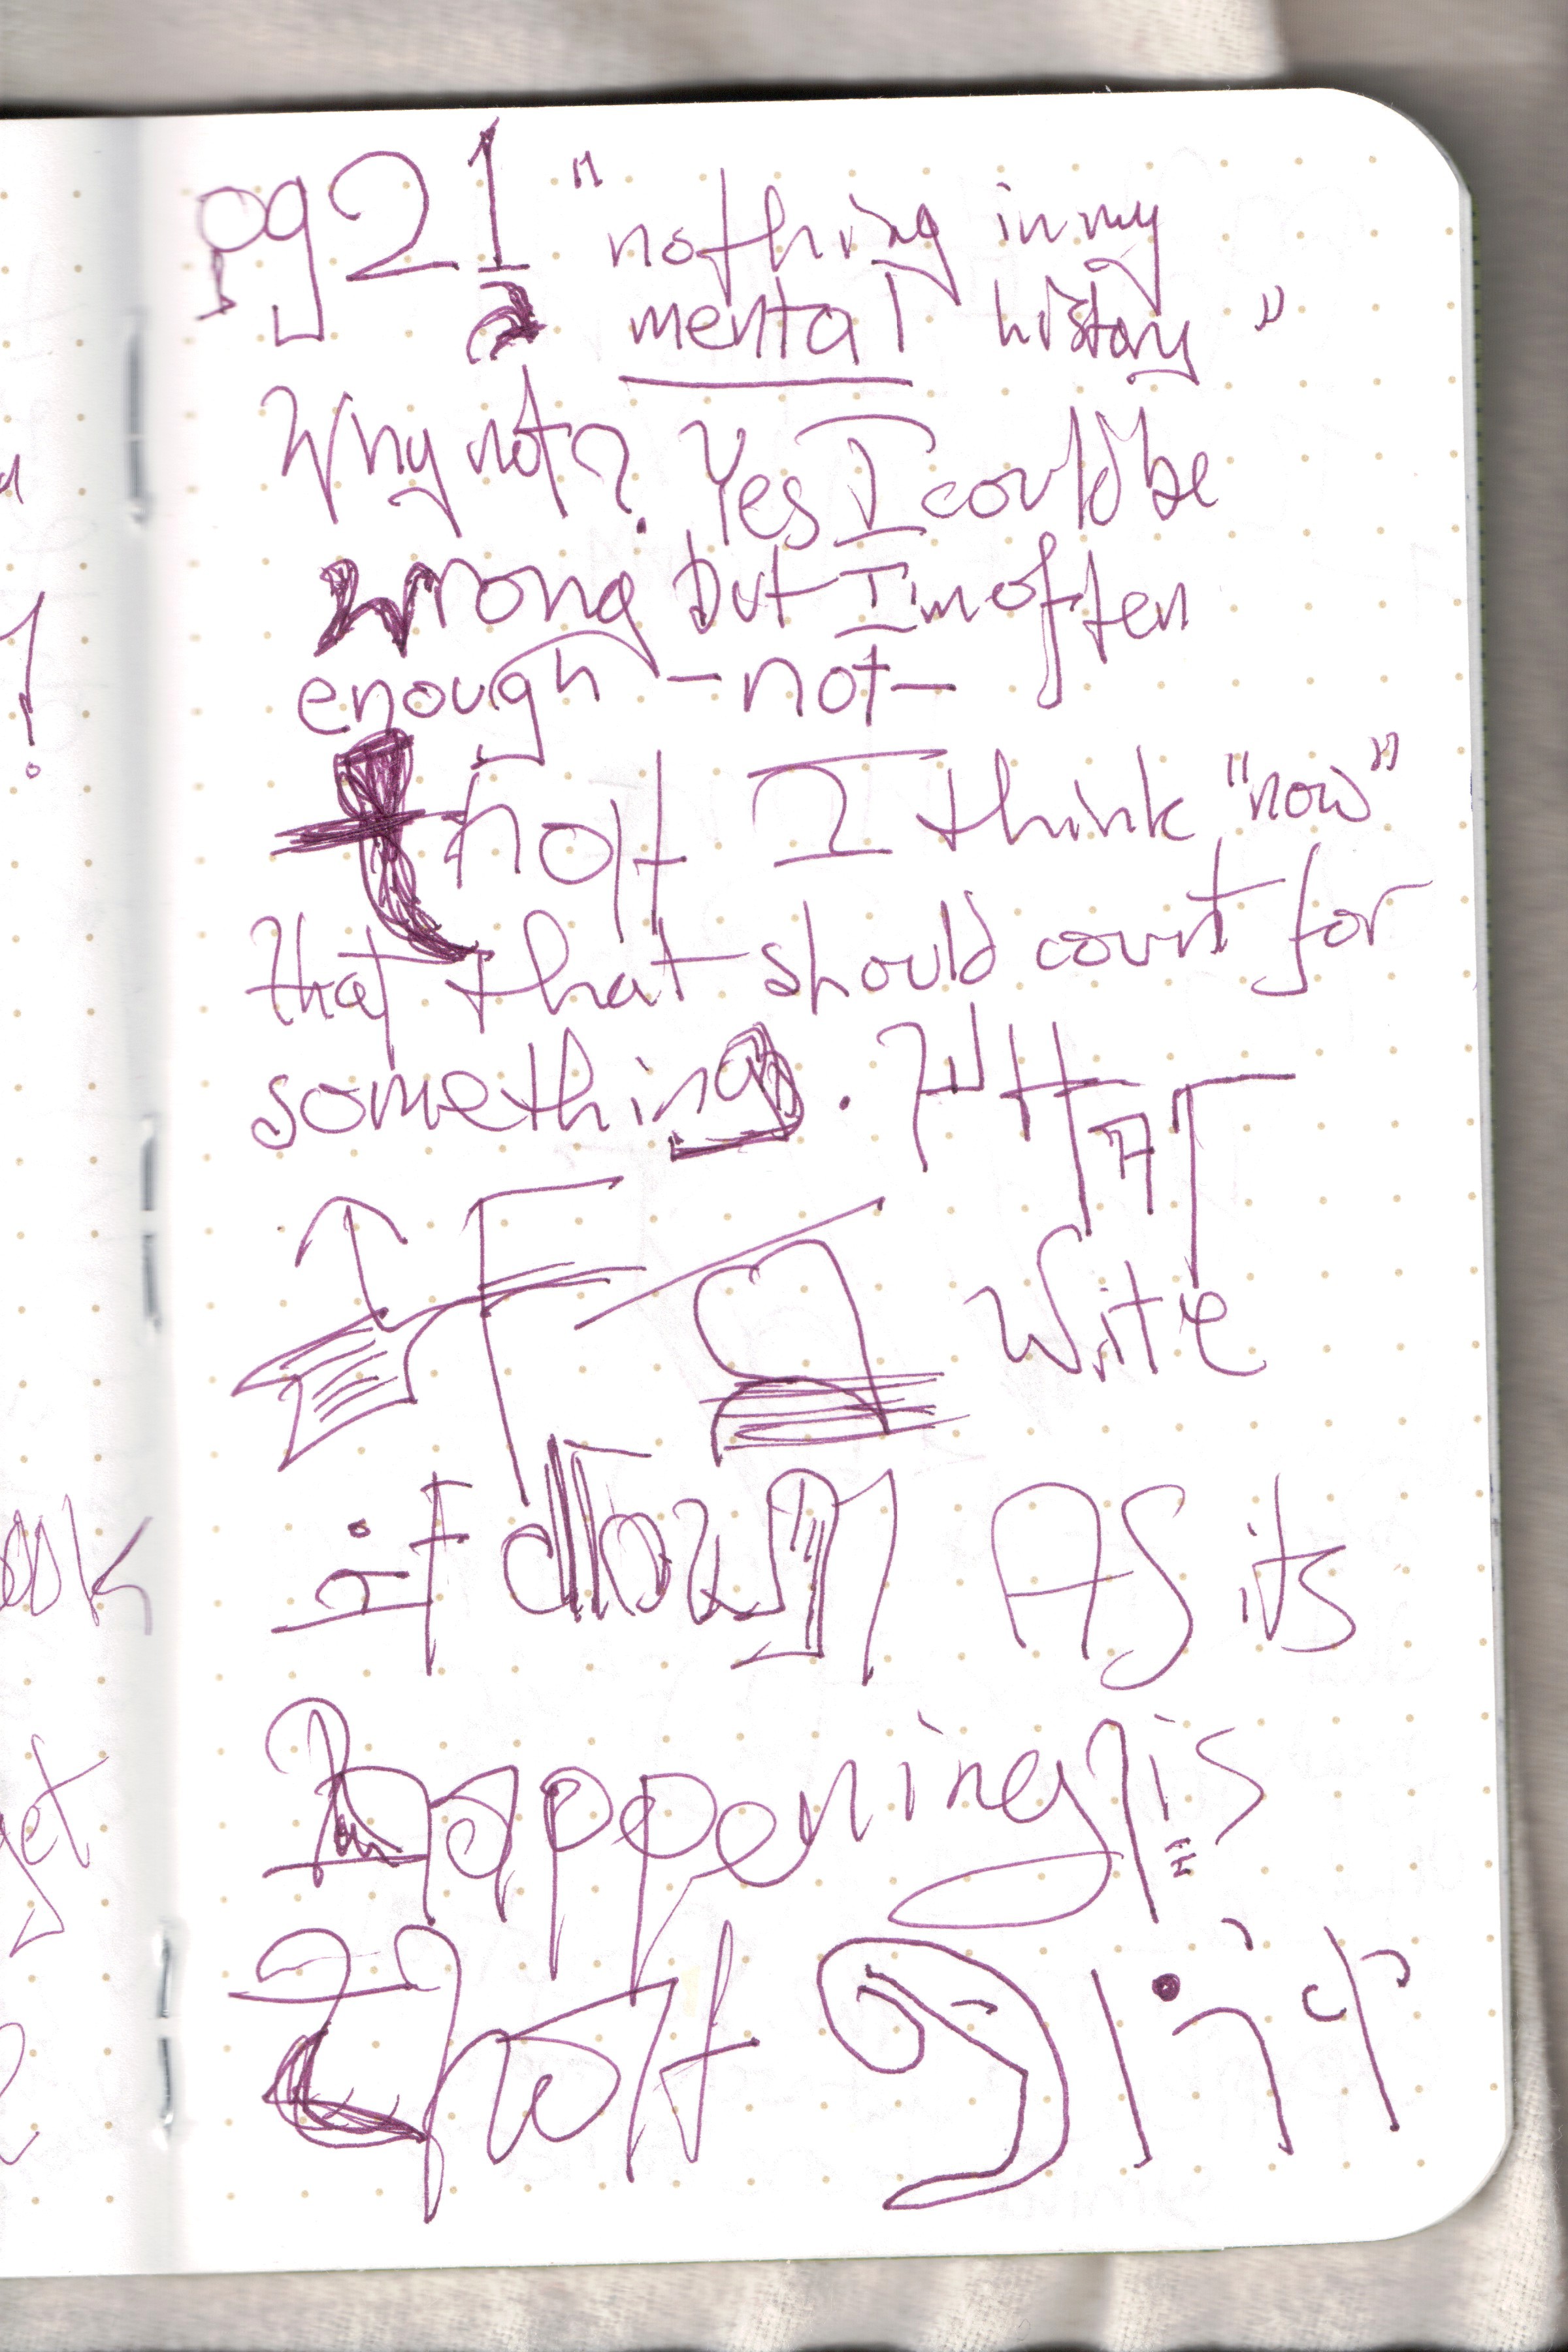 pg 21 "nothing in my
mental history"
Why not? Yes I could be
wrong but I'm often
enough -not-
that I think "now"
that that should count for
something. WHAT
IF a Write
it down AS its
happening is
that
ook
get